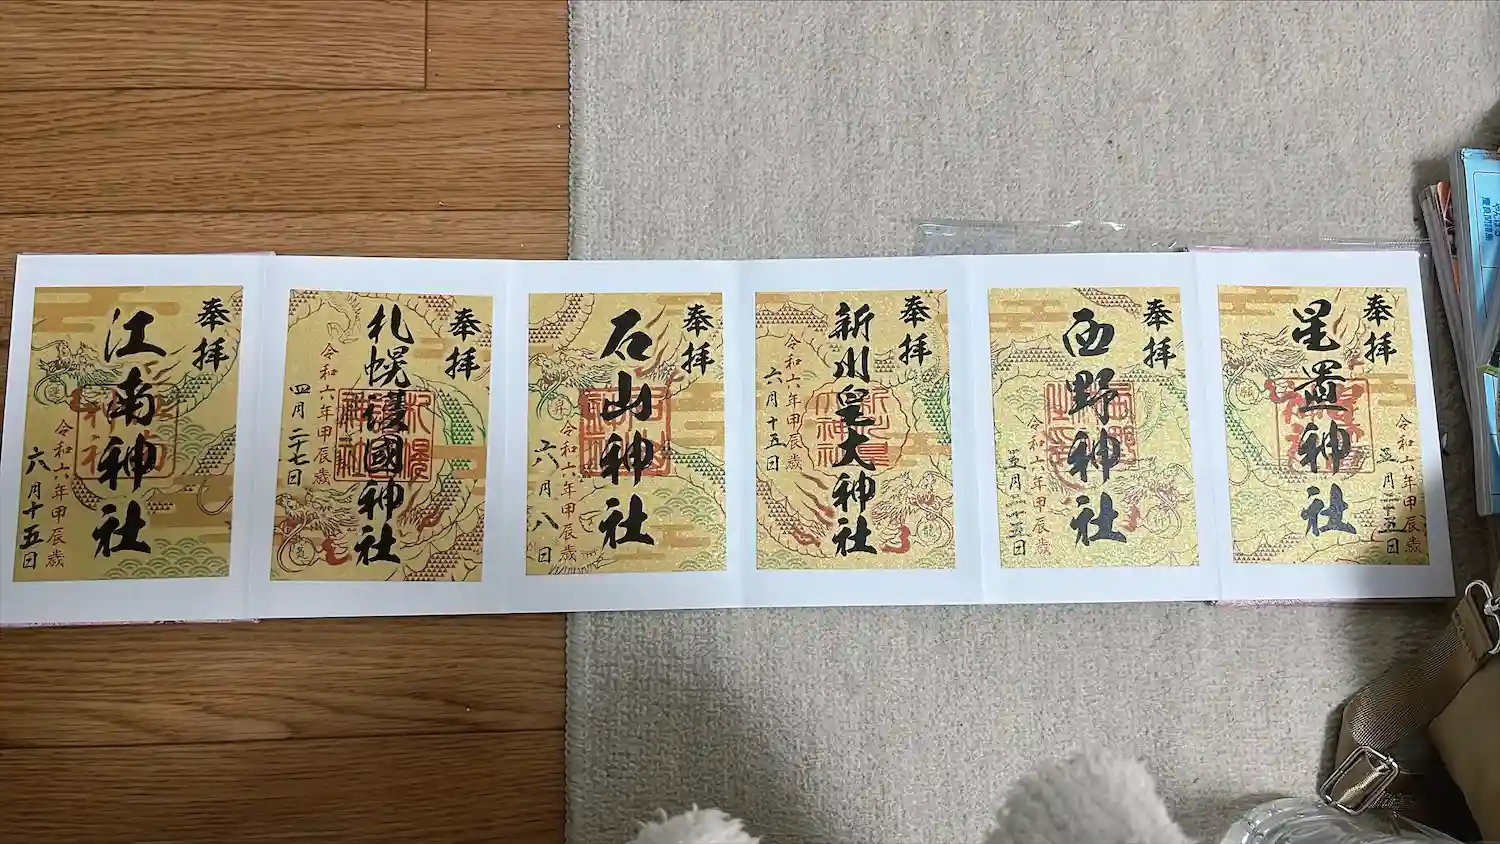 奉拝
星置神社
令和六年甲辰歳
奉拝
西野神社
令和六年甲辰歳
奉拝
新川皇大神社
令和六年甲辰歳
六月十五日
奉拝
石山神社
令和六年甲辰歳
六月八日
奉拝
札幌護國神社
令和六年甲辰歳
四月二十七日
奉拝
江南神社
令和六年甲辰歳
六月十五日